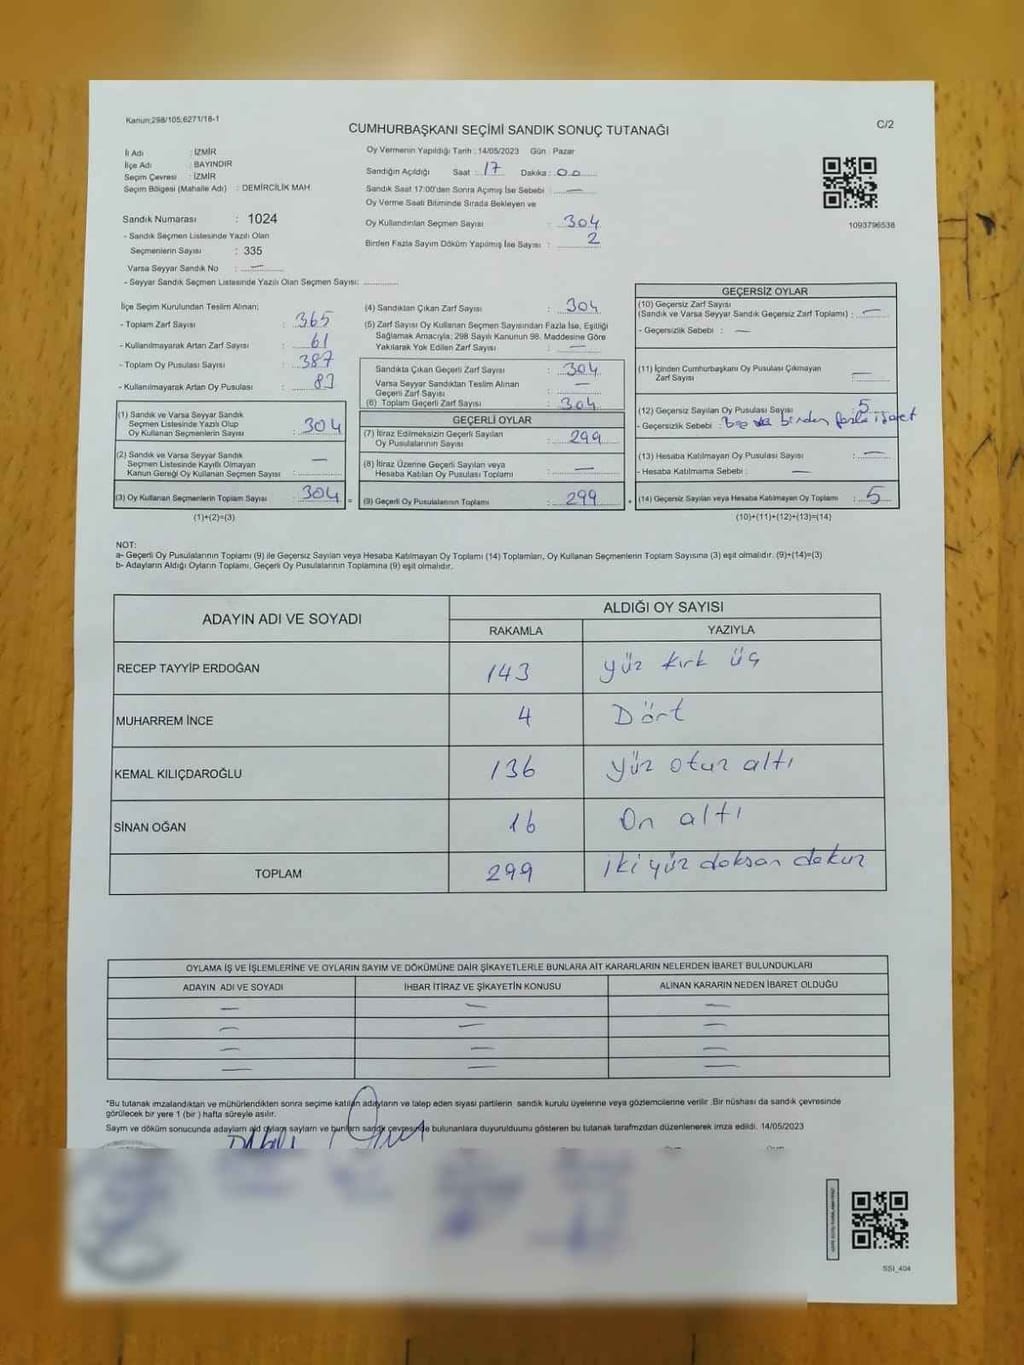 Kanun;298/105;6271/18-1
CUMHURBAŞKANI SEÇİMİ SANDIK SONUÇ TUTANAĞI
C/2
İl Adı : İZMİR
İlçe Adı : BAYINDIR
Seçim Çevresi : İZMİR
Seçim Bölgesi (Mahalle Adı) : DEMİRCİLİK MAH
Sandık Numarası : 1024
- Sandık Seçmen Listesinde Yazılı Olan
Seçmenlerin Sayısı : 335
Varsa Seyyar Sandık No : —
- Seyyar Sandık Seçmen Listesinde Yazılı Olan Seçmen Sayısı: ............
Oy Vermenin Yapıldığı Tarih : 14/05/2023 Gün : Pazar
Sandığın Açıldığı Saat : 17 Dakika : 00
Sandık Saat 17:00'dan Sonra Açımış İse Sebebi : —
Oy Verme Saati Bitiminde Sırada Bekleyen ve
Oy Kullandırılan Seçmen Sayısı : 304
Birden Fazla Sayım Döküm Yapılmış İse Sayısı : 2
1093796538
İlçe Seçim Kurulundan Teslim Alınan;
- Toplam Zarf Sayısı : 365
- Kullanılmayarak Artan Zarf Sayısı : 61
- Toplam Oy Pusulası Sayısı : 387
- Kullanılmayarak Artan Oy Pusulası : 83
(1) Sandık ve Varsa Seyyar Sandık
Seçmen Listesinde Yazılı Olup
Oy Kullanan Seçmenlerin Sayısı : 304
(2) Sandık ve Varsa Seyyar Sandık
Seçmen Listesinde Kayıtlı Olmayan
Kanun Gereği Oy Kullanan Seçmen Sayısı : —
(3) Oy Kullanan Seçmenlerin Toplam Sayısı : 304
(1)+(2)=(3)
(4) Sandıktan Çıkan Zarf Sayısı : 304
(5) Zarf Sayısı Oy Kullanan Seçmen Sayısından Fazla İse, Eşitliği
Sağlamak Amacıyla; 298 Sayılı Kanunun 98. Maddesine Göre
Yakılarak Yok Edilen Zarf Sayısı : —
Sandıkta Çıkan Geçerli Zarf Sayısı : 304
Varsa Seyyar Sandıktan Teslim Alınan
Geçerli Zarf Sayısı : —
(6) Toplam Geçerli Zarf Sayısı : 304
GEÇERLİ OYLAR
(7) İtiraz Edilmeksizin Geçerli Sayılan
Oy Pusulalarının Sayısı : 299
(8) İtiraz Üzerine Geçerli Sayılan veya
Hesaba Katılan Oy Pusulası Toplamı : —
(9) Geçerli Oy Pusulalarının Toplamı : 299
GEÇERSİZ OYLAR
(10) Geçersiz Zarf Sayısı
(Sandık ve Varsa Seyyar Sandık Geçersiz Zarf Toplamı) : —
- Geçersizlik Sebebi : —
(11) İçinden Cumhurbaşkanı Oy Pusulası Çıkmayan
Zarf Sayısı : —
(12) Geçersiz Sayılan Oy Pusulası Sayısı : 5
- Geçersizlik Sebebi : birden fazla işaret
(13) Hesaba Katılmayan Oy Pusulası Sayısı : —
- Hesaba Katılmama Sebebi : —
(14) Geçersiz Sayılan veya Hesaba Katılmayan Oy Toplamı : 5
(10)+(11)+(12)+(13)=(14)
NOT:
a- Geçerli Oy Pusulalarının Toplamı (9) ile Geçersiz Sayılan veya Hesaba Katılmayan Oy Toplamı (14) Toplamları, Oy Kullanan Seçmenlerin Toplam Sayısına (3) eşit olmalıdır. (9)+(14)=(3)
b- Adayların Aldığı Oyların Toplamı, Geçerli Oy Pusulalarının Toplamına (9) eşit olmalıdır.
ADAYIN ADI VE SOYADI
ALDIĞI OY SAYISI
RAKAMLA YAZIYLA
RECEP TAYYİP ERDOĞAN 143 yüz kırk üç
MUHARREM İNCE 4 Dört
KEMAL KILIÇDAROĞLU 136 yüz otuz altı
SİNAN OĞAN 16 On altı
TOPLAM 299 iki yüz doksan dokuz
OYLAMA İŞ VE İŞLEMLERİNE VE OYLARIN SAYIM VE DÖKÜMÜNE DAİR ŞİKAYETLERLE BUNLARA AİT KARARLARIN NELERDEN İBARET BULUNDUKLARI
ADAYIN ADI VE SOYADI İHBAR İTİRAZ VE ŞİKAYETİN KONUSU ALINAN KARARIN NEDEN İBARET OLDUĞU
— — —
— — —
— — —
— — —
*Bu tutanak imzalandıktan ve mühürlendikten sonra seçime katılan adayların ve talep eden siyasi partilerin sandık kurulu üyelerine veya gözlemcilerine verilir. Bir nüshası da sandık çevresinde
görülecek bir yere 1 (bir) hafta süreyle asılır.
Sayım ve döküm sonucunda adayların aldığı oyların sayısını ve bunların sandık çevresinde bulunanlara duyurulduğunu gösteren bu tutanak tarafımızdan düzenlenerek imza edildi. 14/05/2023
SSI_404